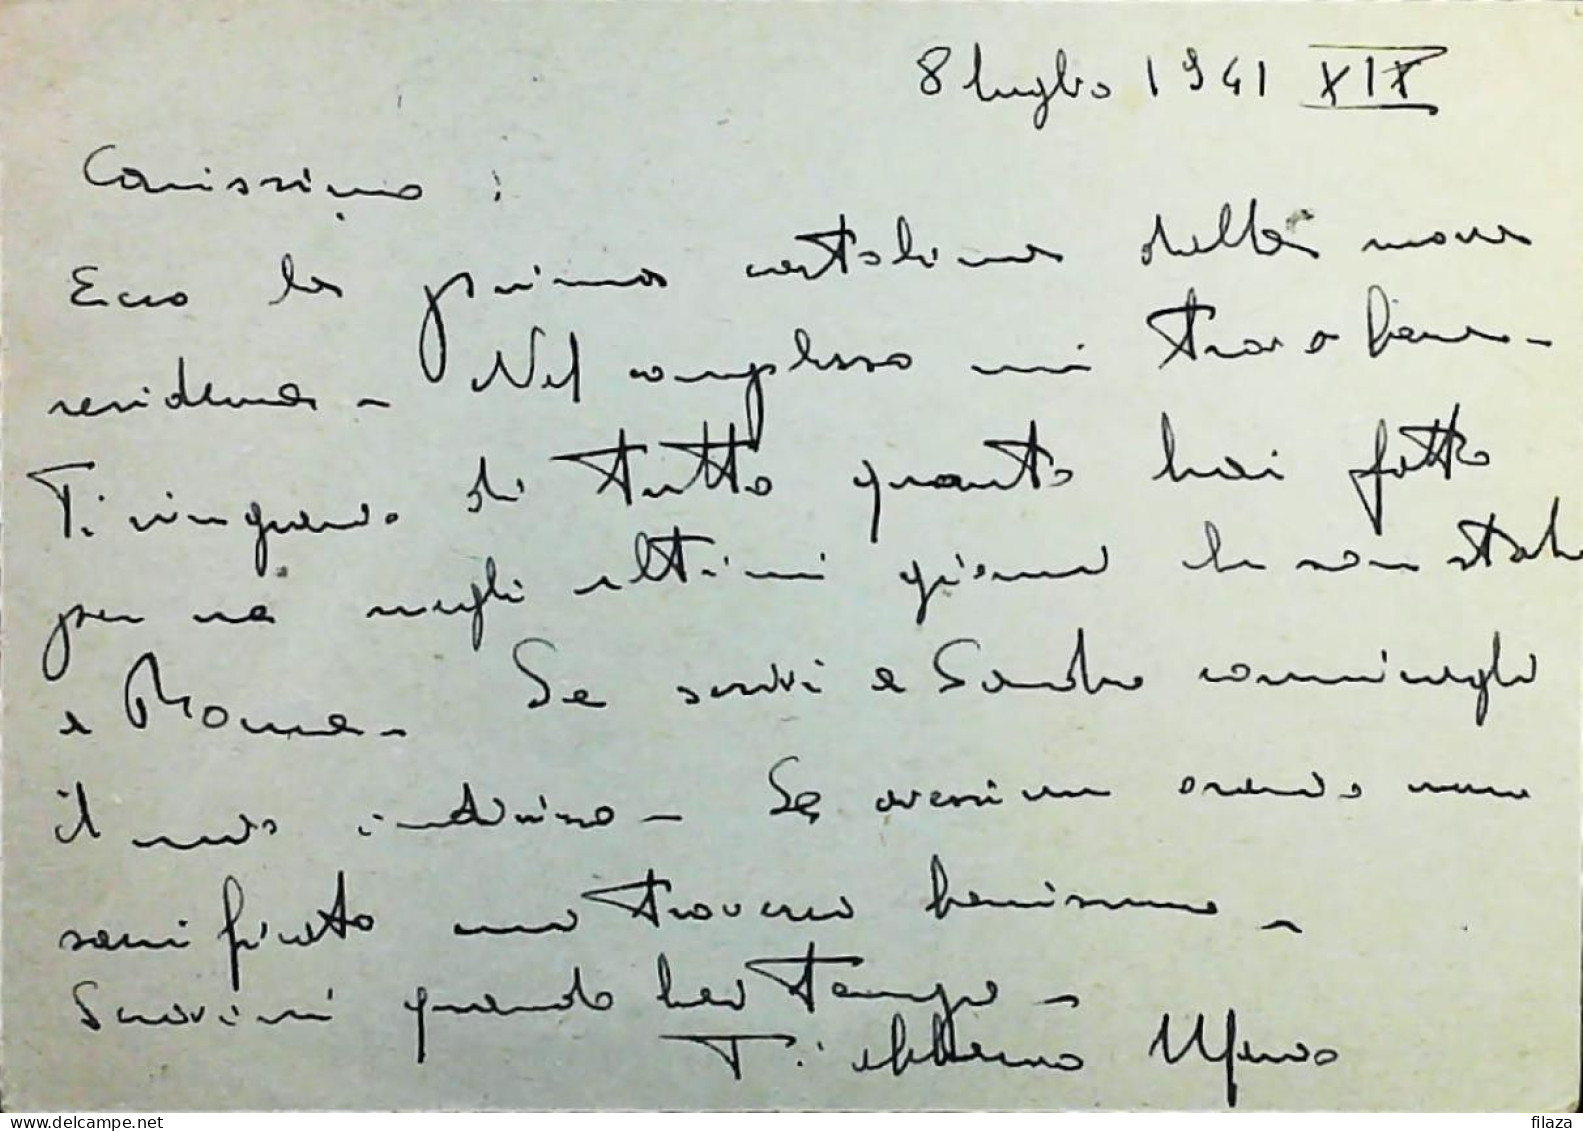 8 luglio 1941 XIX
Carissimo:
Ecco la prima cartolina della nuova
residenza - Nel complesso mi trovo bene -
Ti ringrazio di tutto quanto hai fatto
per me negli ultimi giorni che sono stato
a Roma - Se scrivi a Sandro comunicagli
il mio indirizzo - Se avessi un orario meno
sacrificato mi troverei benissimo -
Scrivimi quando hai tempo -
Ti abbraccio
www.delcampe.net
filaza